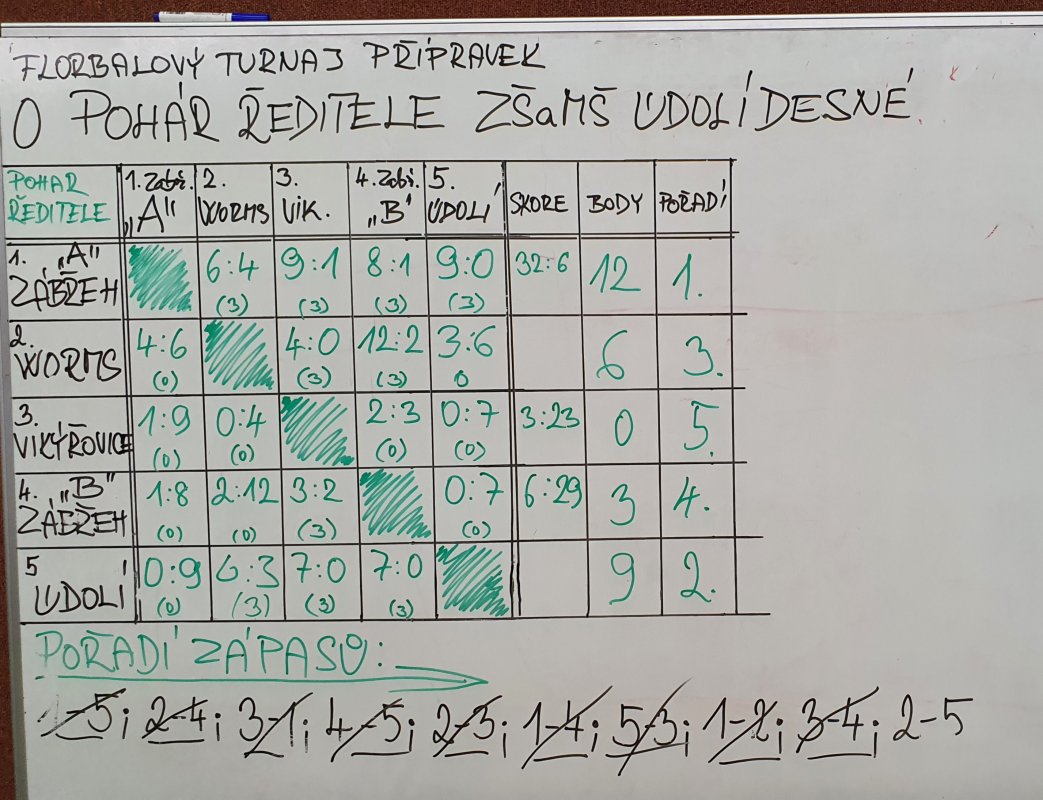 FLORBALOVÝ TURNAJ PŘÍPRAVEK
O POHÁR ŘEDITELE ZŠaMŠ ÚDOLÍ DESNÉ
POHÁR ŘEDITELE 1. Zábř. „A" 2. WORMS 3. VIK. 4. Zábř. „B" 5. ÚDOLÍ SKORE BODY POŘADÍ
1. „A" ZÁBŘEH 6:4 (3) 9:1 (3) 8:1 (3) 9:0 (3) 32:6 12 1.
2. WORMS 4:6 (0) 4:0 (3) 12:2 (3) 3:6 0 6 3.
3. VIKÝŘOVICE 1:9 (0) 0:4 (0) 2:3 (0) 0:7 (0) 3:23 0 5.
4. „B" ZÁBŘEH 1:8 (0) 2:12 (0) 3:2 (3) 0:7 (0) 6:29 3 4.
5 ÚDOLÍ 0:9 (0) 6:3 (3) 7:0 (3) 7:0 (3) 9 2.
POŘADÍ ZÁPASŮ:
1-5; 2-4; 3-1; 4-5; 2-3; 1-4; 5-3; 1-2; 3-4; 2-5